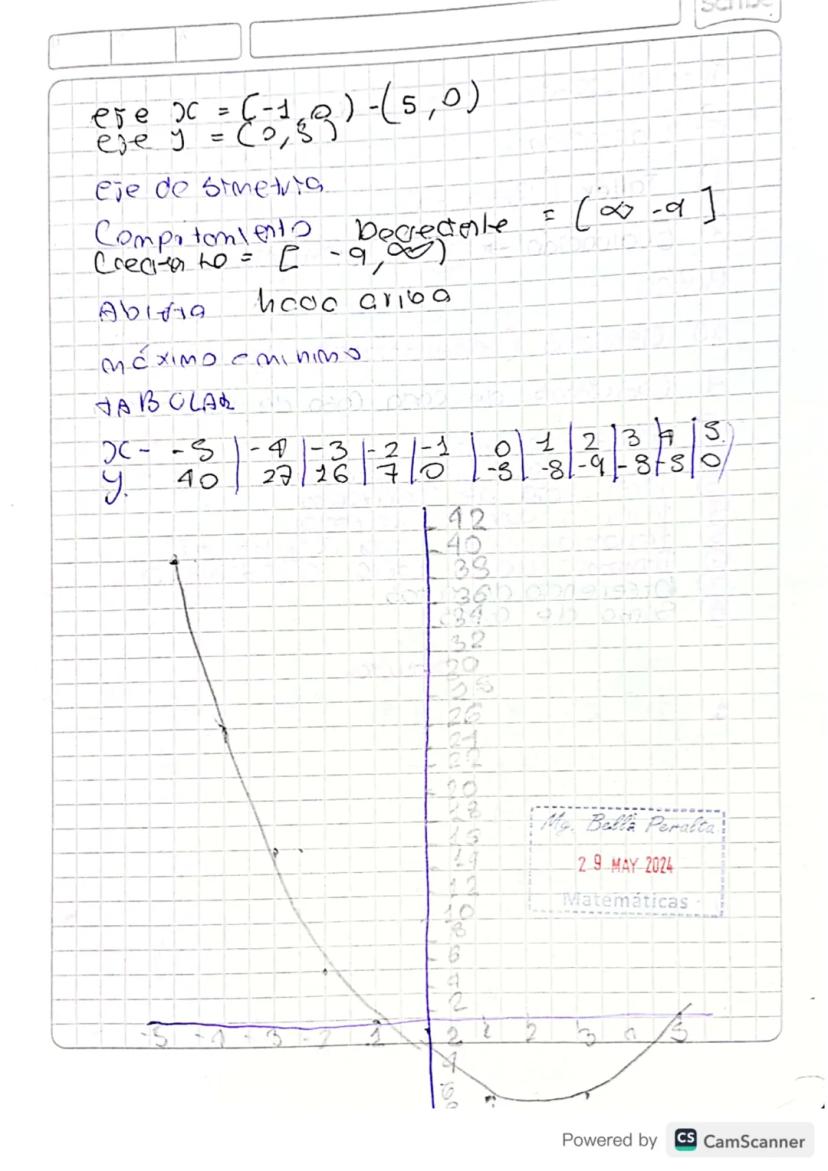 SCRIBE
eje x = (-1, 0) - (5, 0)
eje y = (0, 5)
eje de simetria
Compitamiento Decreciente = [∞ -9]
= [ -9, ∞)
Abirtia haca ariba
máximo e minimo
TABULAR
x - -5 | -4 | -3 | -2 | -1 | 0 | 1 | 2 | 3 | 4 | 5
y. 40 | 27 | 16 | 7 | 0 | -5 | -8 | -9 | -8 | -5 | 0
42
40
38
36
34
32
30
28
26
24
22
20
18
16
14
12
10
8
6
4
2
-5 -4 -3 -2 -1 2 1 2 3 4 5
4
6
Mg. Bella Peralta
29 MAY 2024
Matemáticas
Powered by CS CamScanner